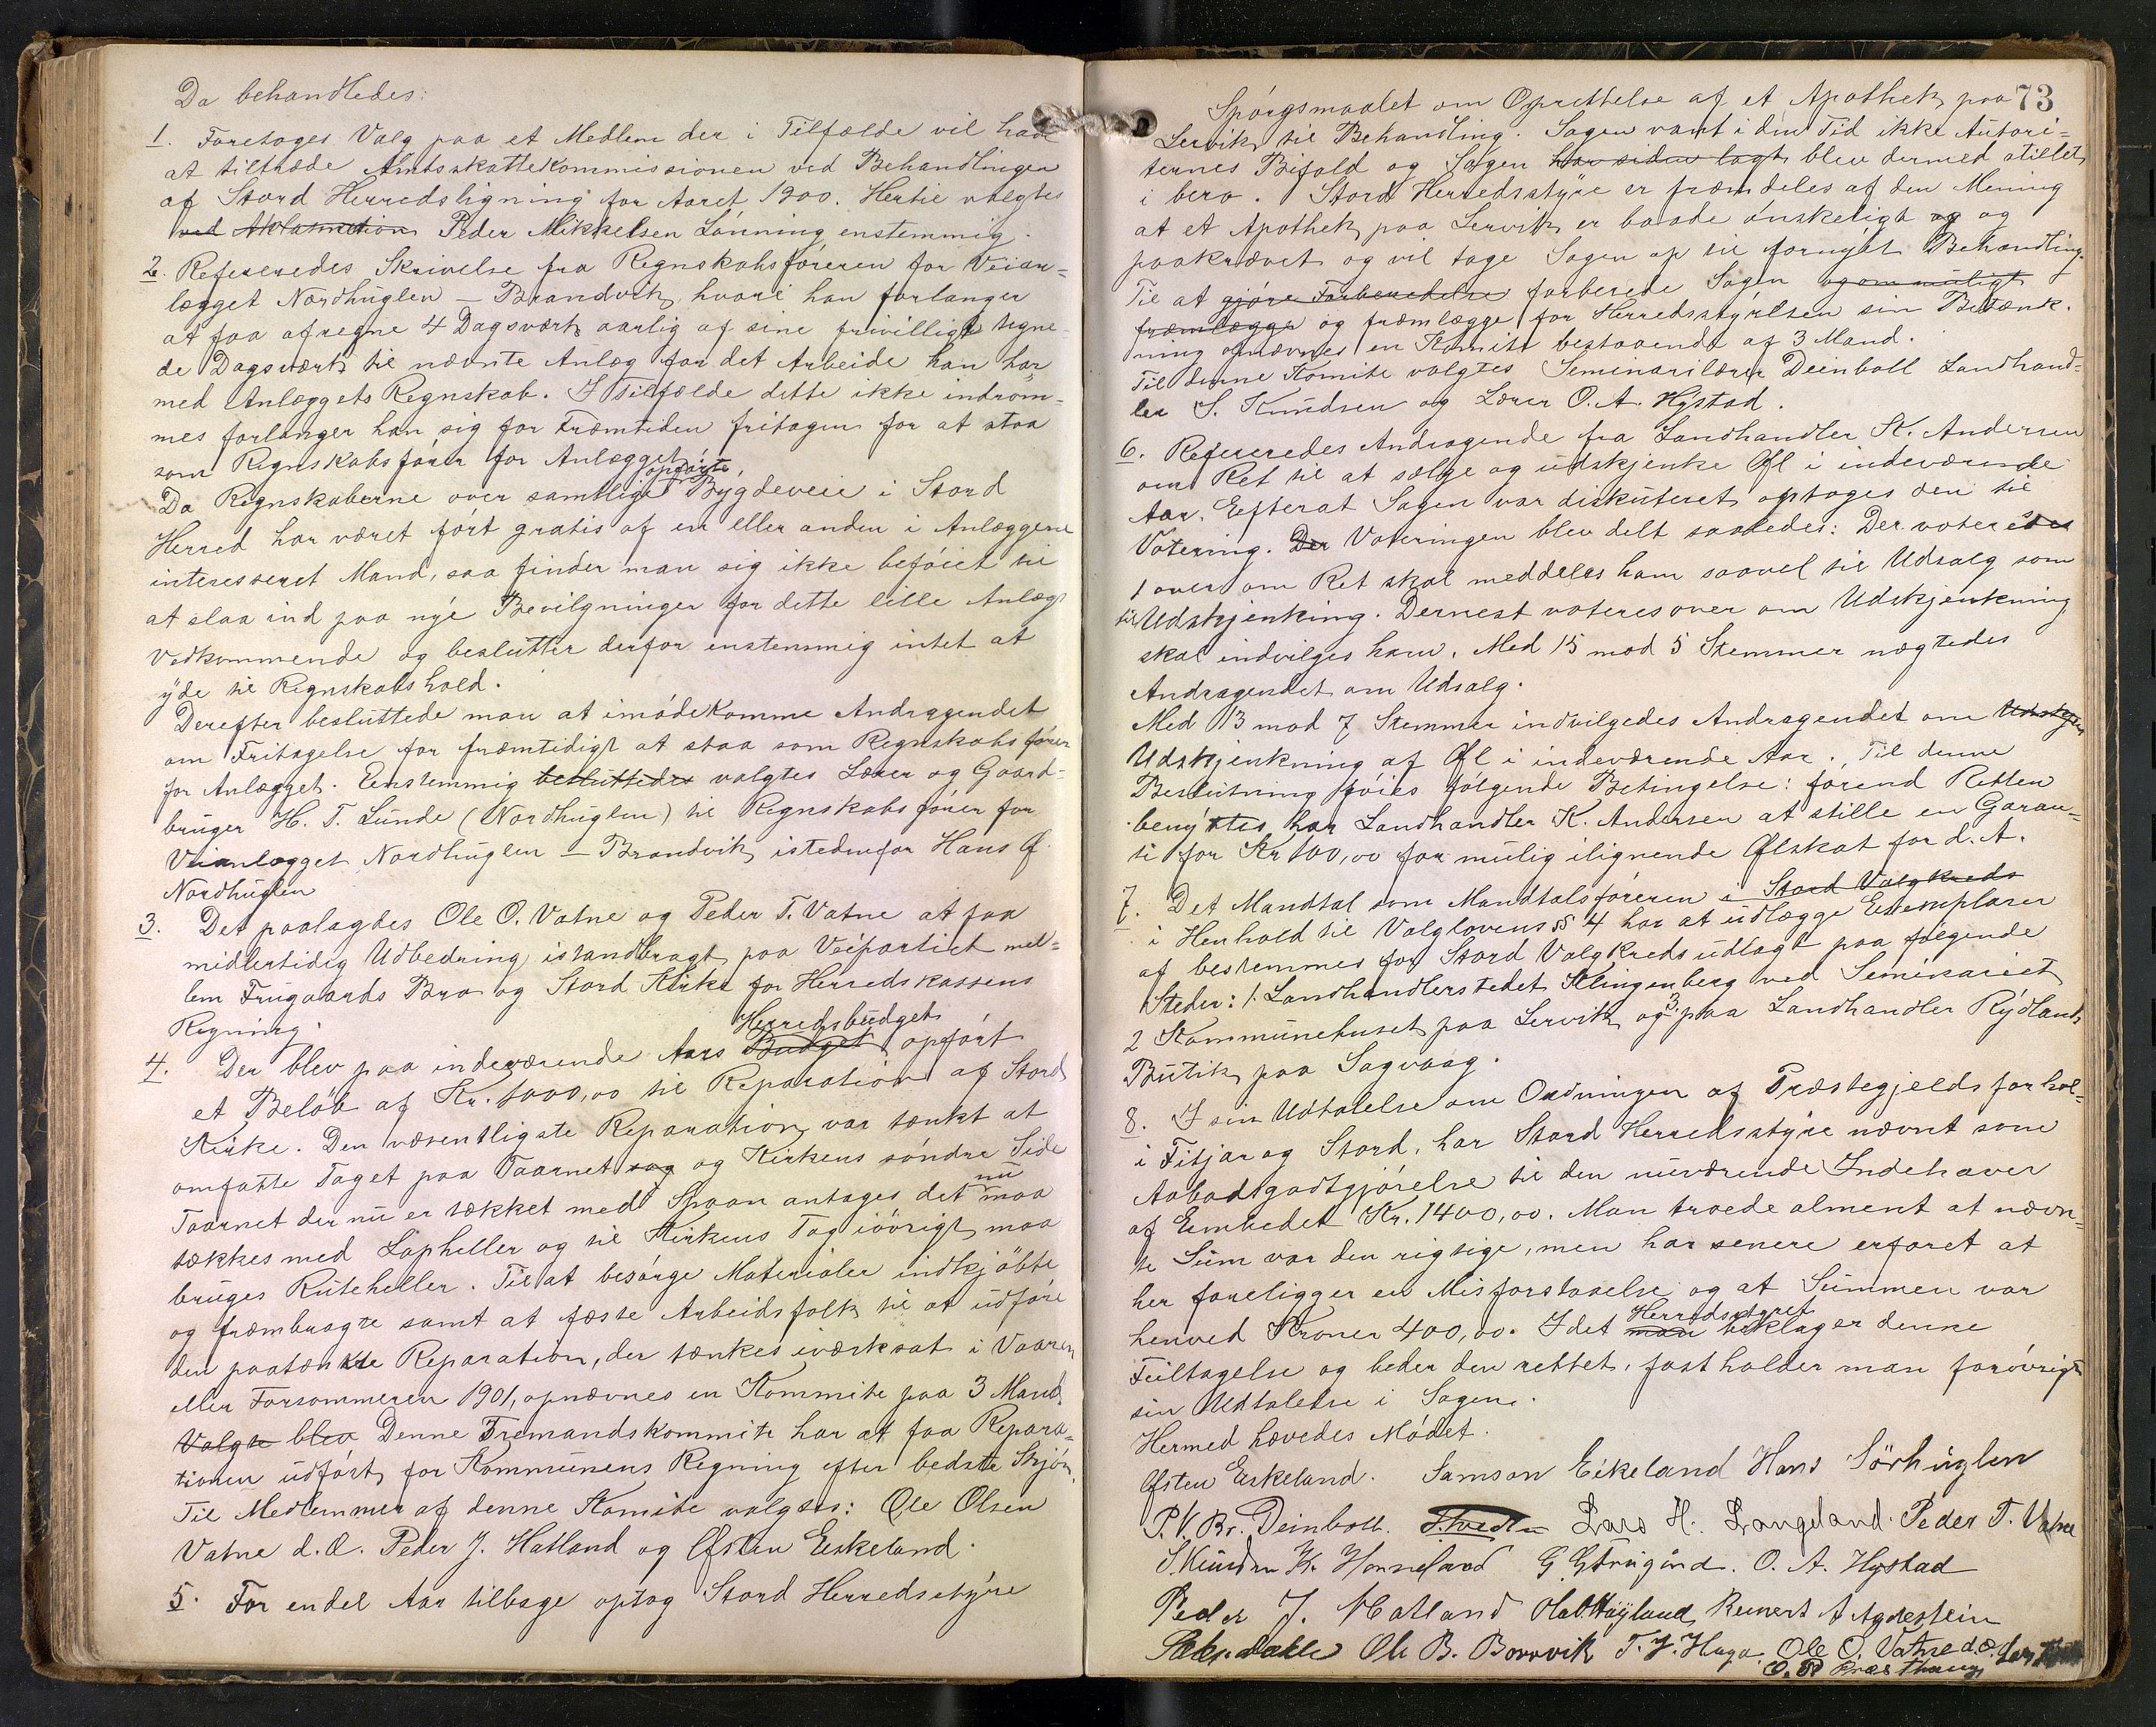 Da behandledes:
1. Foretoges Valg paa et Medlem der i Tilfælde vil have
at tiltræde Amtsskattekommissionen ved Behandlingen
af Stord Herredsligning for Aaret 1900. Hertil valgtes
ved Aklamation Peder Mikkelsen Lönning enstemmig.
2. Refereredes Skrivelse fra Regnskabsföreren for Veian-
lægget Nordhuglen – Brandvik hvori han forlanger
at faa afregne 4 Dagsværk aarlig af sine frivilligt tegne-
de Dagsværk til nævnte Anlæg for det Arbeide han har
med Anlæggets Regnskab. I Tilfælde dette ikke indröm-
mes forlanger han sig for Fræmtiden fritagen for at staa
som Regnskabsförer for Anlægget.
opförte
Da Regnskaberne over samtlige Bygdeveie i Stord
Herred har været fört gratis af en eller anden i Anlæggene
interesseret Mand, saa finder man sig ikke beföiet til
at slaa ind paa nye Bevilgninger for dette lille Anlægs
Vedkommende og beslutter derfor enstemmig intet at
yde til Regnskabshold.
Derefter besluttede man at imödekomme Andragendet
om Fritagelse for fræmtidigt at staa som Regnskabsförer
for Anlægget. Enstemmig besluttedes valgtes Lærer og Gaard-
bruger H. T. Lunde (Nordhuglen) til Regnskabsförer for
Veianlægget Nordhuglen – Brandvik istedenfor Hans Ø.
Nordhuglen
3. Det paalagdes Ole O. Vatne og Peder T. Vatne at faa
midlertidig Udbedring istandbragt paa Veipartiet mel-
lem Frugaards Bro og Stord Kirke for Herredskassens
Regning.
Herredsbudget
4. Der blev paa indeværende Aars Budget opfört
et Belöb af Kr. 1000,00 til Reparation af Stord
Kirke. Den væsentligste Reparation var tænkt at
omfatte Taget paa Taarnet sag og Kirkens söndre Side
nu
Taarnet der nu er tækket med Spaan antages det maa
tækkes med Lapheller og til Kirkens Tag iövrigt maa
bruges Ruteheller. Til at besörge Materialer indkjöbte
og fræmbragte samt at fæste Arbeidsfolk til at udföre
den paatænkte Reparation, der tænkes iværksat i Vaaren
eller Forsommeren 1901, opnævnes en Kommite paa 3 Mand.
Valgte blev Denne Tremandskommite har at faa Repara-
tionen udfört for Kommunens Regning efter bedste Skjön.
Til Medlemmer af denne Komite valgtes: Ole Olsen
Vatne d. Æ. Peder J. Hatland og Østen Eskeland.
5. For endel Aar tilbage optog Stord Herredsstyre
73
Spörgsmaalet om Oprettelse af et Apothek paa
Lervik til Behandling. Sagen vant i din Tid ikke Autori-
ternes Bifald og Sagen har siden lagt blev dermed stillet
i bero. Stord Herredsstyre er fræmdeles af den Mening
at et Apothek paa Lervik er baade önskeligt og og
paakrævet og vil tage Sagen op til fornyet Behandling.
Til at gjöre Forberedelse forberede Sagen og om muligt
fræmlægge og fræmlægge for Herredsstyrelsen sin Betænk-
ning opnævnes en Komite bestaaende af 3 Mand.
Til denne Komite valgtes Seminarilærer Deinboll Landhand-
ler S. Knudsen og Lærer O. A. Hystad.
6. Refereredes Andragende fra Landhandler K. Andersen
om Ret til at sælge og udskjenke Øl i indeværende
Aar. Efterat Sagen var diskuteret optoges den til
Votering. Der Voteringen blev delt saaledes: Der voteredes
1 over om Ret skal meddeles ham saavel til Udsalg som
til Udskjenking. Dernest voteres over om Udskjenkning
skal indvilges ham. Med 15 mod 5 Stemmer nægtedes
Andragendet om Udsalg.
Med 13 mod 7 Stemmer indvilgedes Andragendet om Udskjen
Udskjenkning af Øl i indeværende Aar. Til denne
Beslutning föies fölgende Betingelse: förend Retten
benyttes har Landhandler K. Andersen at stille en Garan-
ti for Kr 100,00 for mulig ilignende Ølskat for d. A.
7. Det Mandtal som Mandtalsföreren i Stord Valgkreds
i Henhold til Valglovens § 4 har at udlægge Exemplarer
af bestemmes for Stord Valgkreds udlagt paa følgende
Steder: 1. Landhandlerstedet Klingenberg ved Seminariet
2 Kommunehuset paa Lervik og 3. paa Landhandler Rydlands
Butik paa Sagvaag.
8. I sin Udtalelse om Ordningen af Præstegjeldsforhol-
i Fitjar og Stord, har Stord Herredsstyre nævnt som
Aabodsgodtgjörelse til den nuværende Indehaver
af Embedet Kr. 1400,00. Man troede alment at nævn-
te Sum var den rigtige, men har senere erfaret at
her foreligger en Misforstaaelse og at Summen var
Herredsstyret
henved Kroner 400,00. Idet man beklager denne
Feiltagelse og beder den rettet, fastholder man forövrigt
sin Udtalelse i Sagen.
Hermed hævedes Mödet.
Østen Eskeland. Samson Eikeland Hans Sörhuglen
P. V. Br. Deinboll. Lars H. Langeland. Peder T. Vatne
S. Knudsen K. Horneland G. G. Frugård. O. A. Hystad
Peder J. Hatland Olav Höyland Reinert A Agdestein
Ole B. Borrvik T. J. Haga. Ole O. Vatne d. Æ.
O. P. Præsthaug